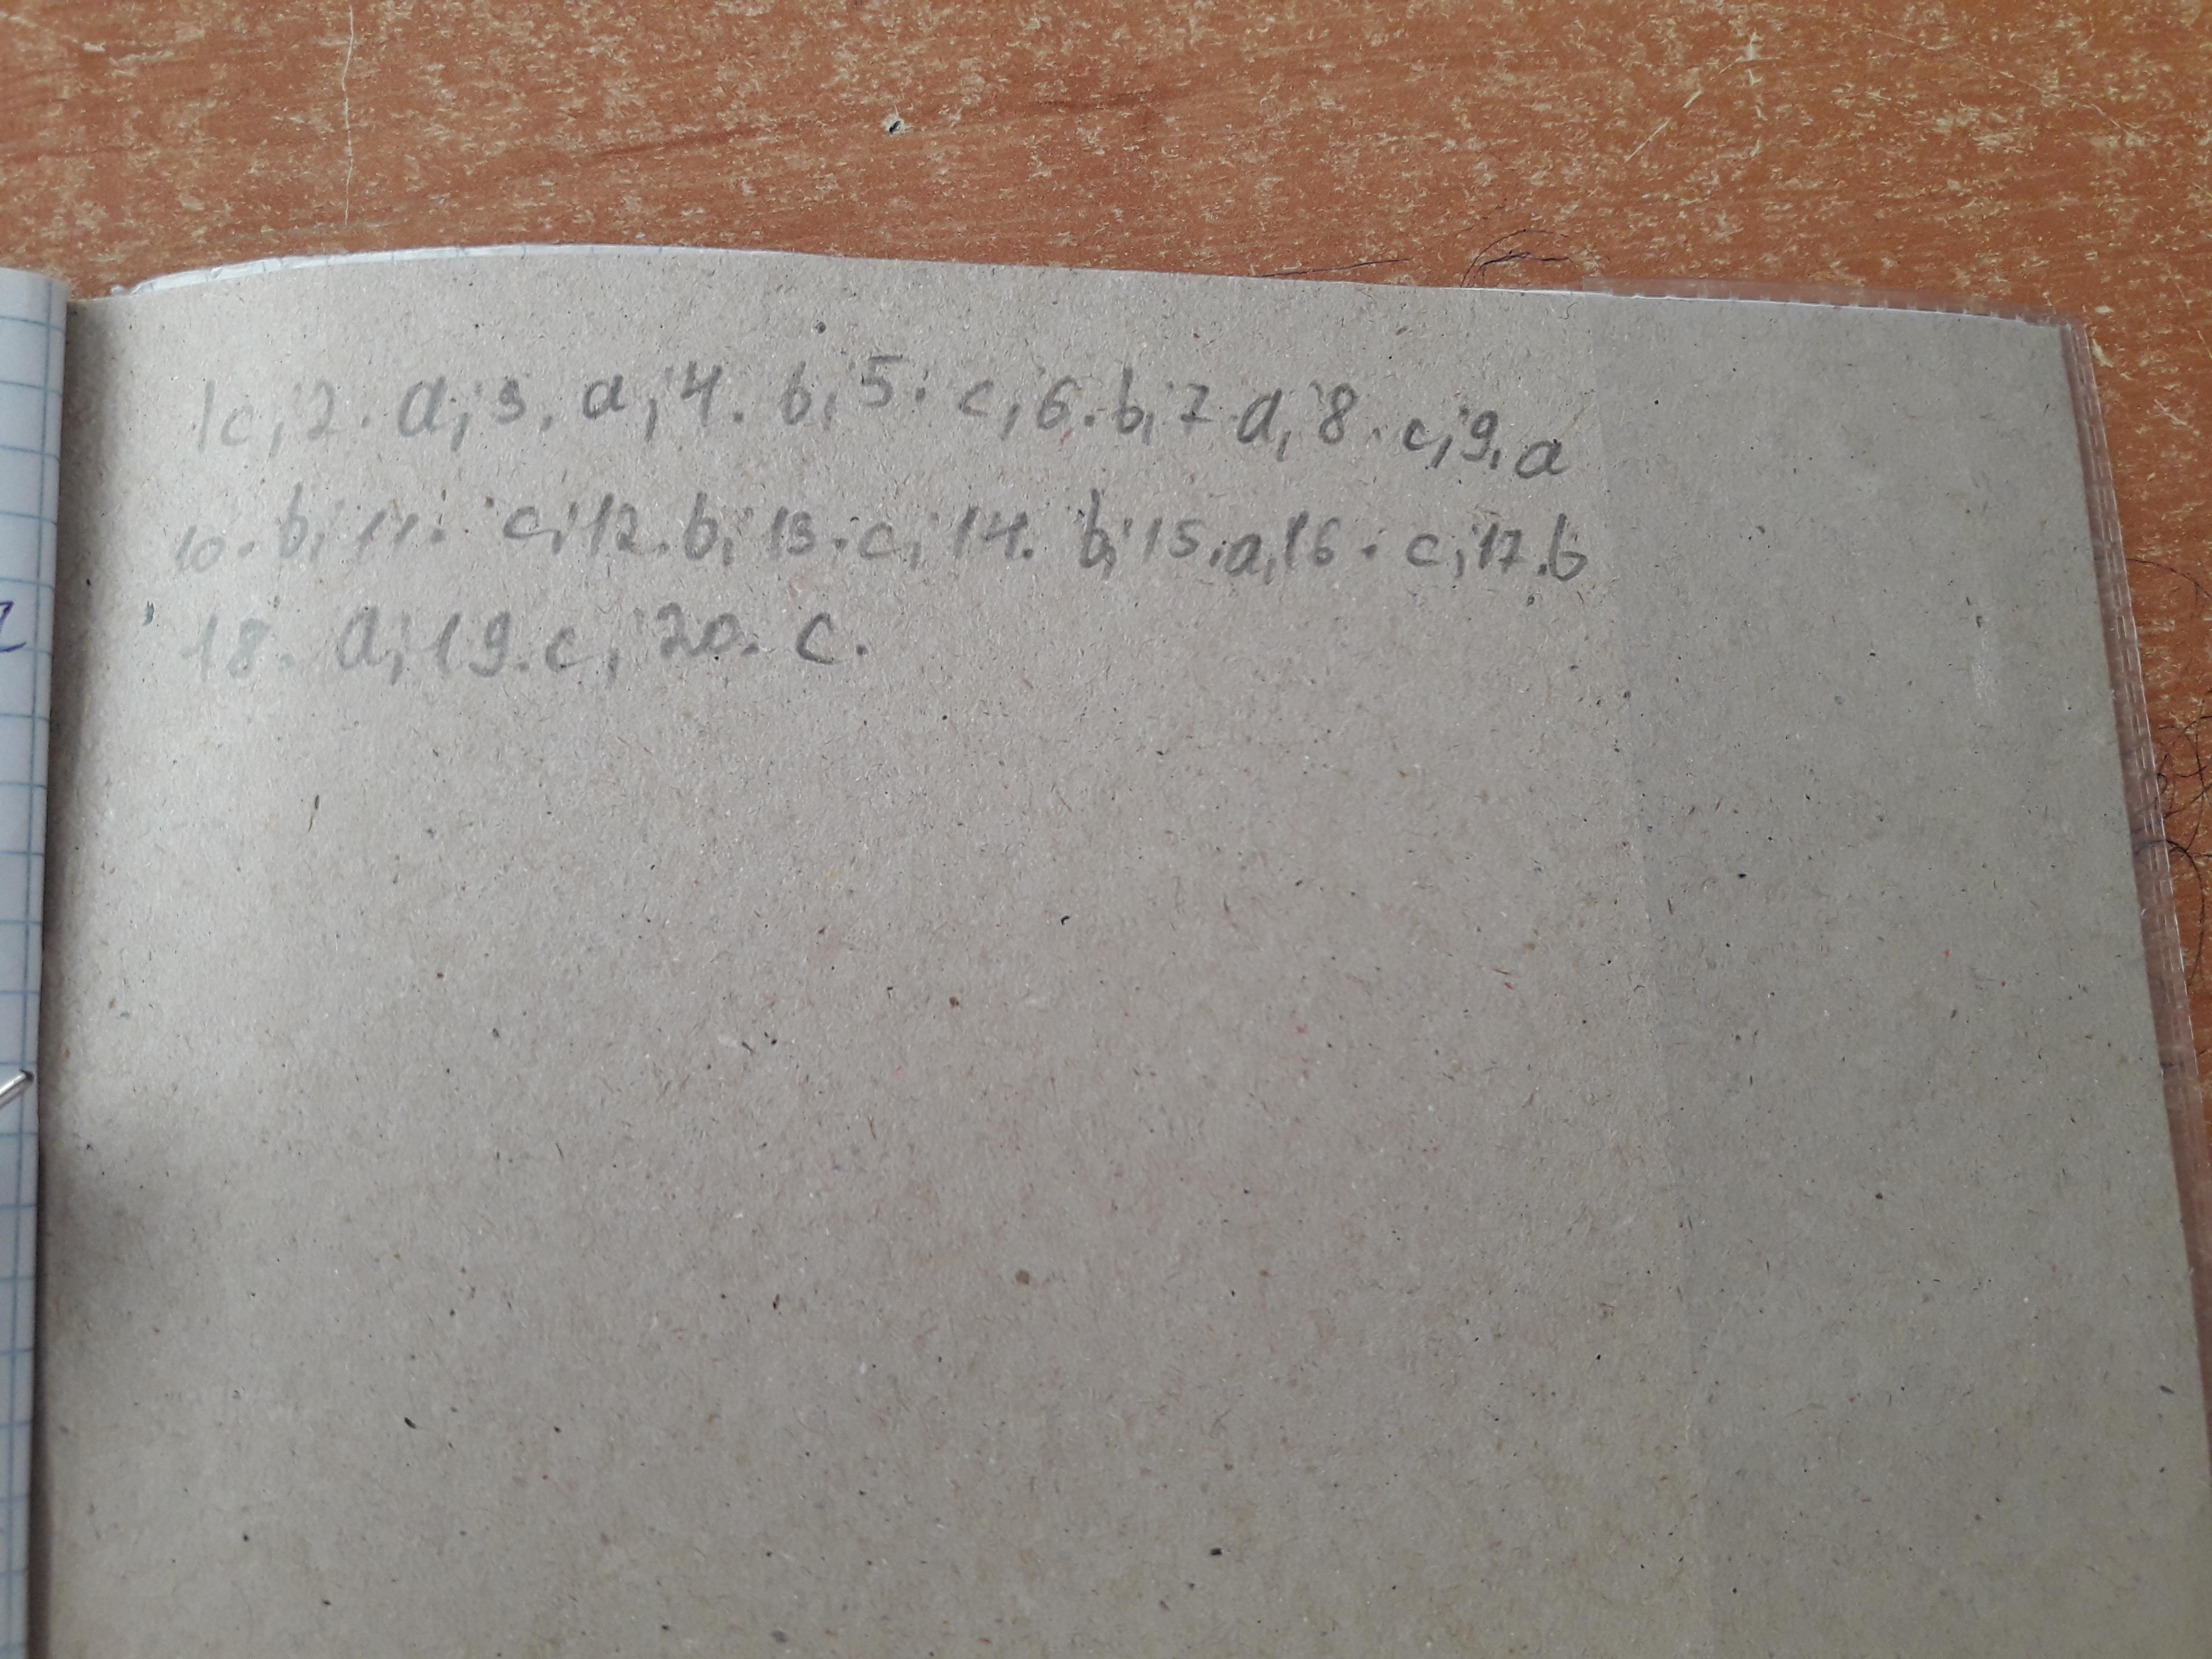 1c; 2. a; 3. a; 4. b; 5. c; 6. b; 7 a; 8. c; 9. a
10. b; 11. c; 12. b; 13. c; 14. b; 15. a, 16. c; 17. b
18. a; 19. c; 20. c.